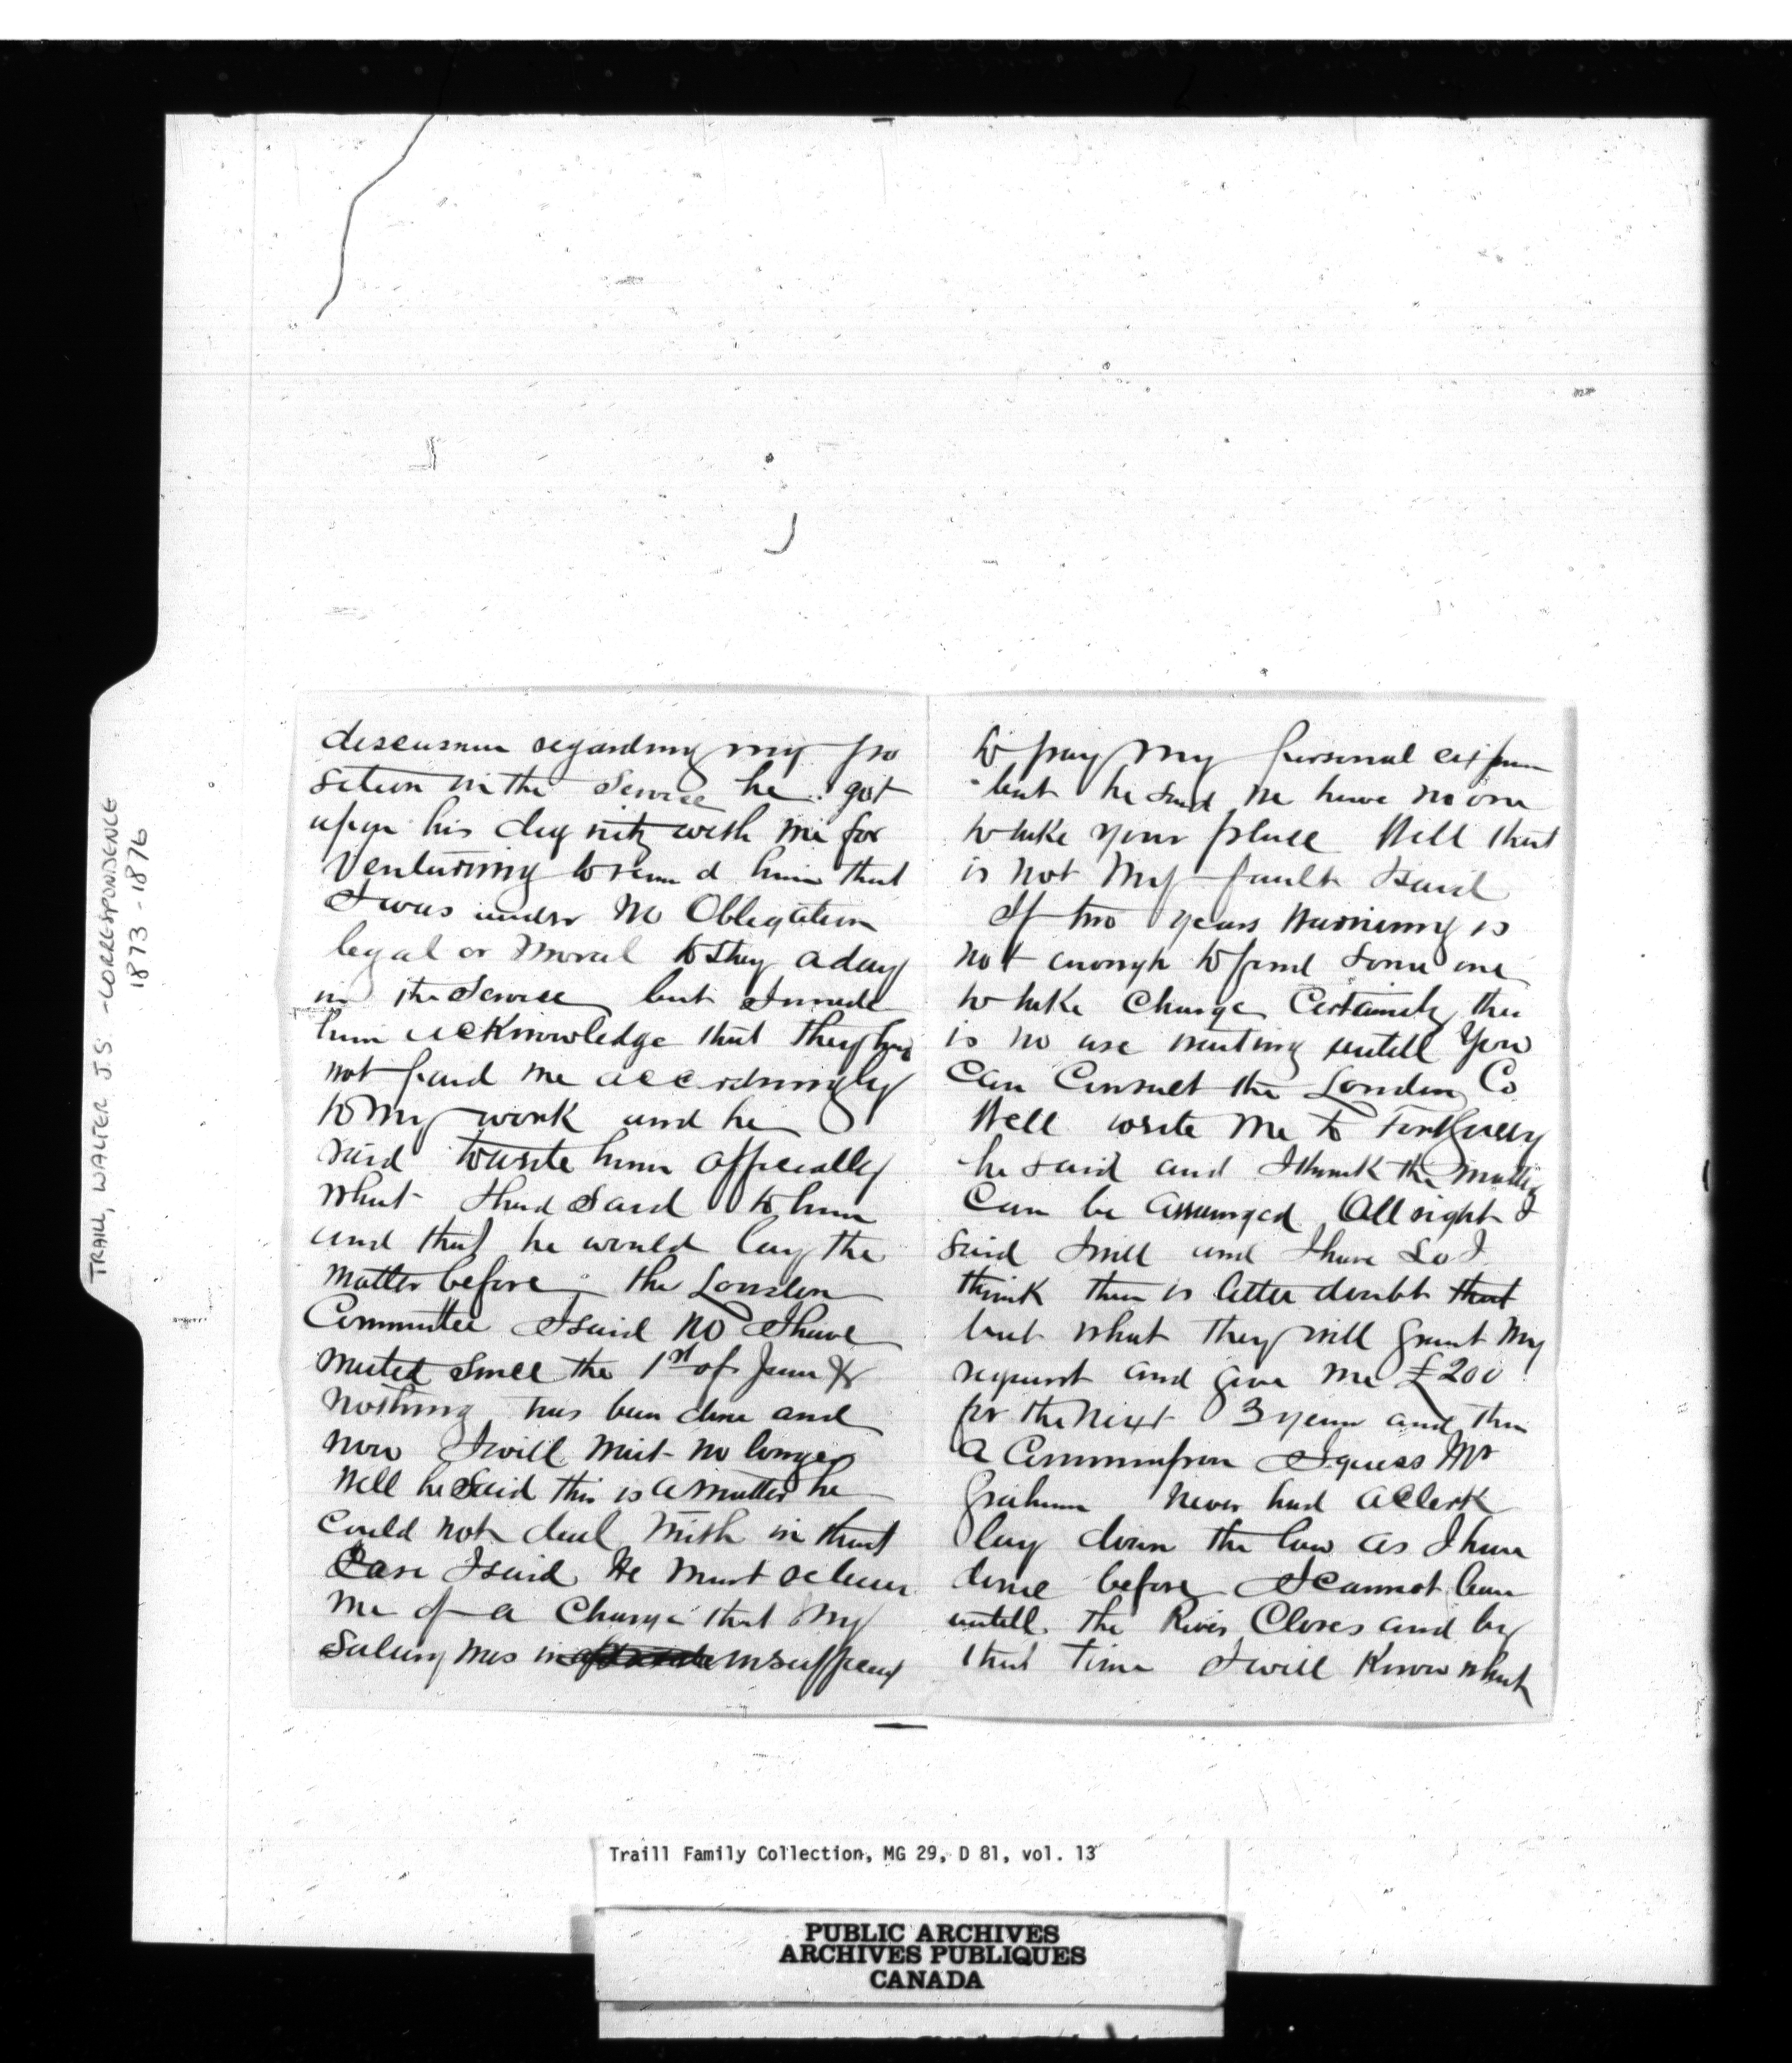 TRAILL, WALTER J.S. - CORRESPONDENCE
1873-1876
discussion regarding my po
sition in the Service he got
upon his dignity with me for
venturing to remind him that
I was under no Obligation
legal or moral to stay a day
in the Service but I made
him acknowledge that they had
not paid me accordingly
to my work and he
said to write him officially
what I had said to him
and that he would lay the
matter before the London
Committee I said no I have
waited since the 1st of June &
nothing has been done and
now I will wait no longer
Well he said this is a matter he
could not deal with in that
Case I said He must relieve
me of a Charge that my
Salary was insufficient
to pay my personal expen
but he said we have no one
to take your place Well that
is not my fault I said
If two years Warning is
not enough to find some one
to take Charge Certainly ther
is no use waiting untill you
can Consult the London Co
Well write me to Fort Garry
he said and I think the matter
can be arranged All right I
said I will and I have so I
think there is litter doubt that
but what they will grant my
request and give me £200
for the next 3 years and then
a Commission I guess Mr
Graham never had a Clerk
lay down the law as I have
done before I cannot leave
untill the River Closes and by
that time I will know what
Traill Family Collection, MG 29, D 81, vol. 13
PUBLIC ARCHIVES
ARCHIVES PUBLIQUES
CANADA